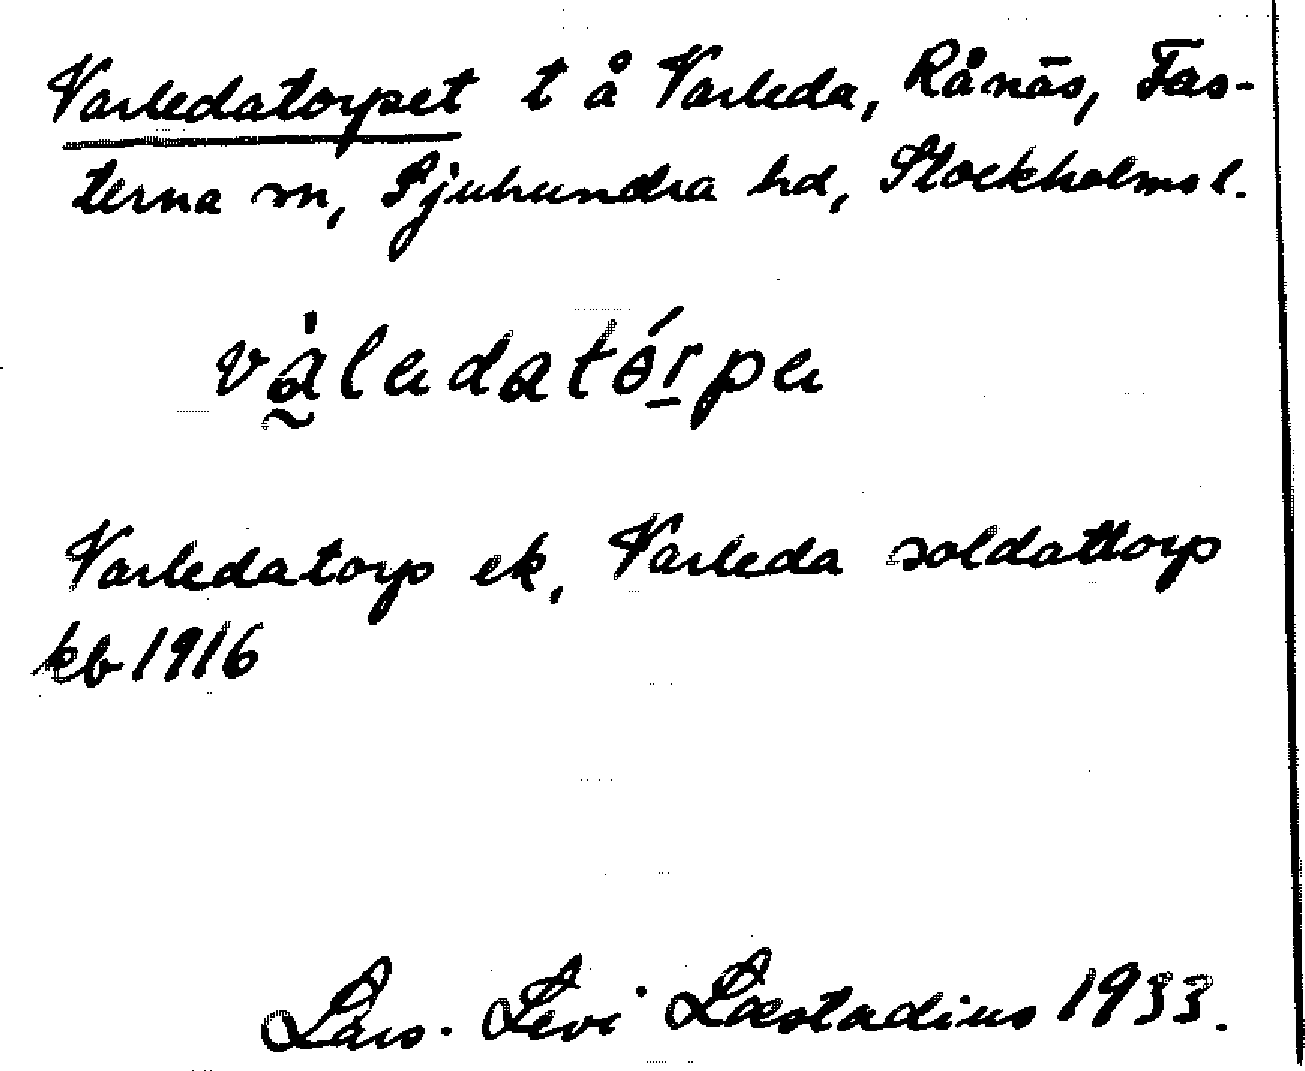 Varledatorpet t å Varleda, Rånäs, Fas-
terna sn, Sjuhundra hd, Stockholms l.
vàledatórpe
Varledatorp ek, Varleda soldattorp
kb 1916
Lars-Levi Læstadius 1933.